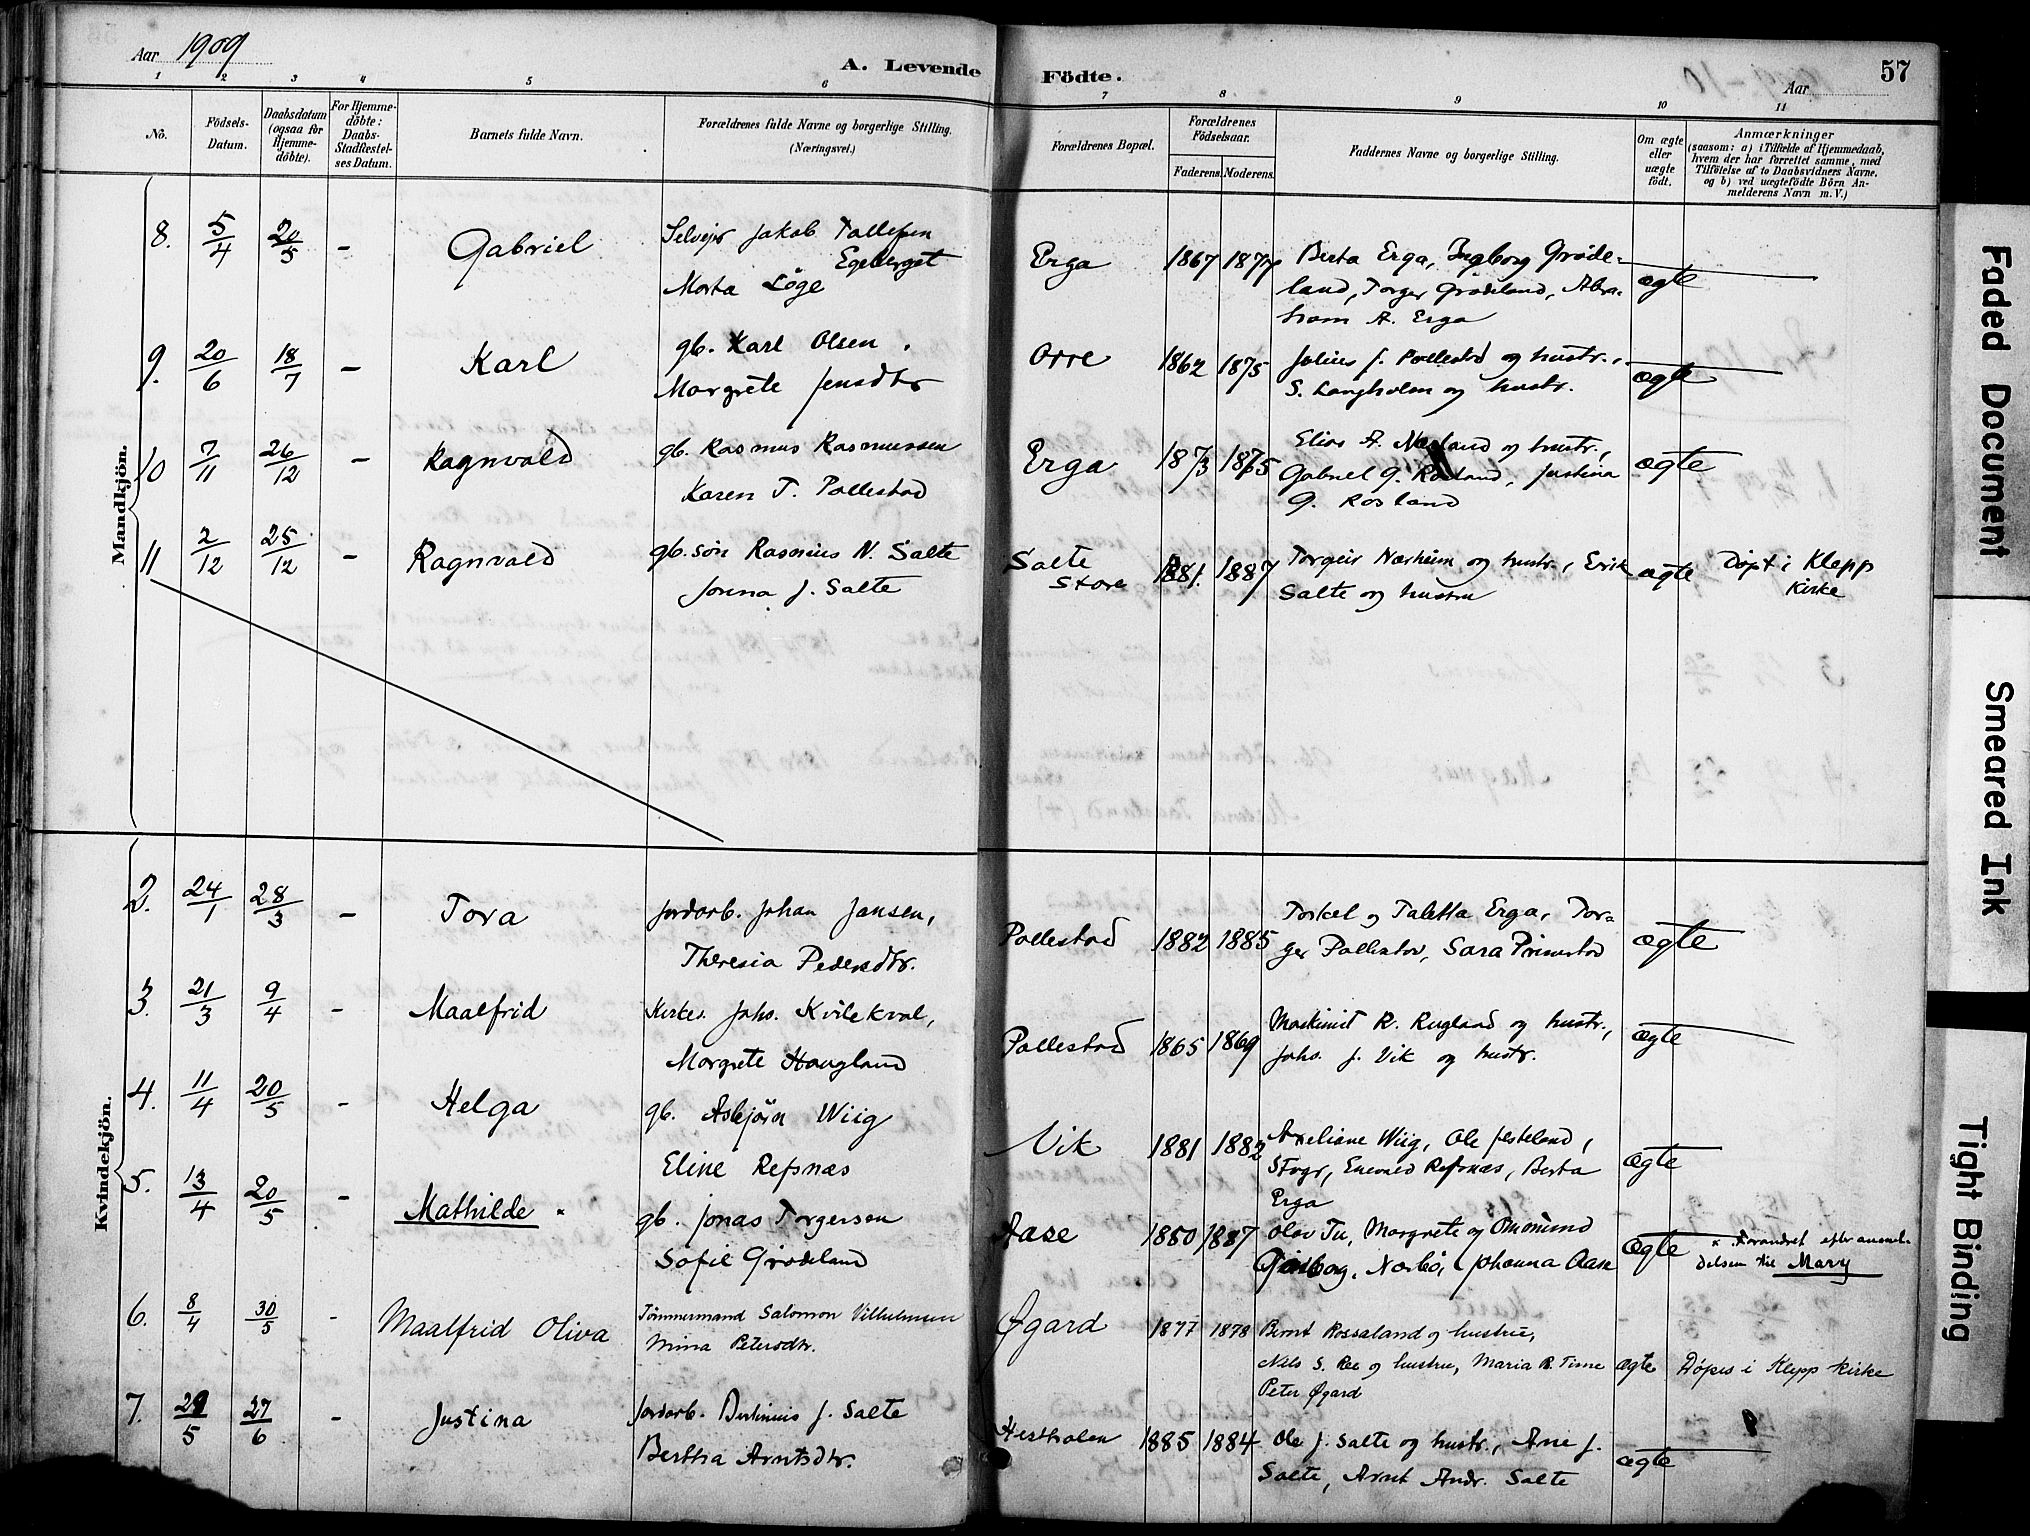 Aar 1909
A. Levende Födte.
57
Aar
1 2 3 4 5 6 7 8 9 10 11
No.
Födsels-Datum.
Daabsdatum (ogsaa for Hjemme-döbte).
For Hjemme-döbte: Daabs-Stadfæstel-ses Datum.
Barnets fulde Navn.
Forældrenes fulde Navne og borgerlige Stilling.
(Næringsvei.)
Forældrenes Bopæl.
Forældrenes Födselsaar.
Faderens. Moderens.
Faddernes Navne og borgerlige Stilling.
Om ægte eller uægte födt.
Anmærkninger
(saasom: a) i Tilfælde af Hjemmedaab,
hvem der har forrettet samme, med
Tilföielse af to Daabsvidners Navne,
og b) ved uægtefödte Börn An-
melderens Navn m. V.)
Mandkjön.
8. 5/4 20/5 - Gabriel Selveier Jakob Tallefsen
Egeberget
Marta Löge
Erga 1867 1877 Berta Erga, Ingborg Gröde-
land, Torger Grödeland, Abra-
ham A. Erga
ægte
9. 20/6 18/7 - Karl gb. Karl Olsen,
Margrete Jensdtr
Orre 1862 1875 Julius J. Pollestad og hustr.,
S. Langholen og hustr.
ægte
10 7/11 26/12 - Ragnvald gb. Rasmus Rasmussen
Karen T. Pollestad
Erga 1873 1875 Elias A. Nærland og hustr.,
Gabriel G. Rosland, Justina
G. Rosland
ægte
11 2/12 25/12 - Ragnvald gb. sön Rasmus N. Salte
Jonna J. Salte
Salte
Store
1881. 1887 Torgeir Nærheim og hustr., Eirik
Salte og hustru
ægte Döpt i Klepp
Kirke
Kvindekjön.
2. 24/1 28/3 - Tora Jordarb. Johan Jansen,
Theresia Pedersdtr.
Pollestad 1882 1885 Torkel og Taletta Erga, Tor-
ger Pollestad, Sara Primstad
ægte
3. 21/3 9/4 - Maalfrid Kirkes. Johs. Kvilekval,
Margrete Haugland
Pollestad 1865 1869 Maskinist R. Rugland og hustr.,
Johs. J. Vik og hustr.
ægte
4. 11/4 20/5 - Helga gb. Asbjörn Wiig
Eline Refsnæs
Vik 1881 1882 Wiig, Ole
Refsnæs, Berta
Erga
ægte
5. 13/4 20/5 - Mathilde × gb. Jonas Torgersen
Sofie Grödeland
Aase 1880 1887 Olav Tu, Margrete og Omund
Nærbö, Johanna Aase
ægte × Forandret efter anmel-
delsen til Mary
6. 8/4 30/5 - Maalfrid Oliva Tömmermand Salomon Vilhelmsen
Mina Petersdtr.
Øgard 1877 1878 Bernt Rossaland og hustru,
Nils S. Ree og hustru, Maria R. Time
Peter Øgard
ægte Döpes i Klepp kirke
7. 29/5 27/6 - Justina Jordarb. Bertinius J. Salte
Bertha Arntsdtr.
Hestholen 1885 1884 Ole J. Salte og hustr., Ane J.
Salte, Arnt Andr. Salte
ægte
Faded Document
Smeared Ink
Tight Binding